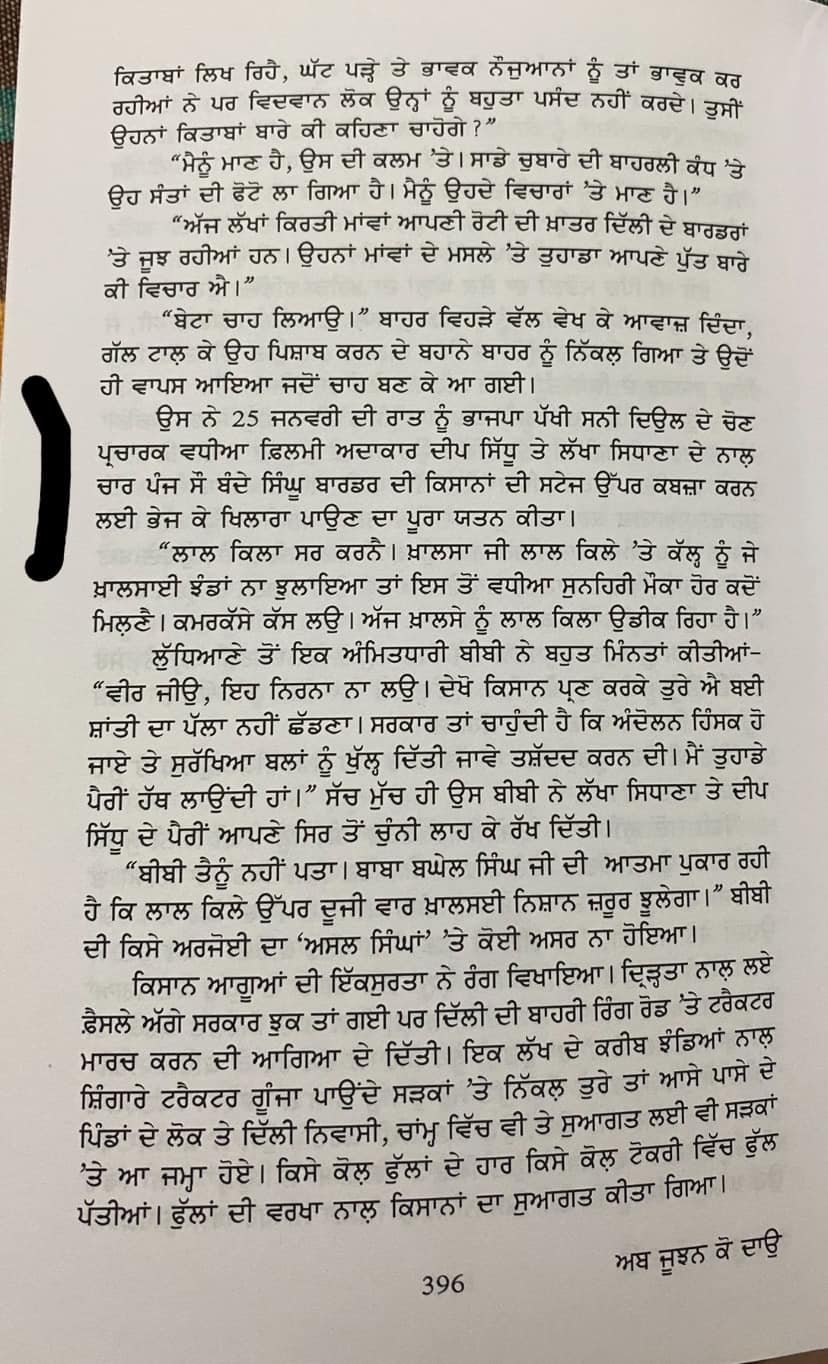 ਕਿਤਾਬਾਂ ਲਿਖ ਰਿਹੈ, ਘੱਟ ਪੜ੍ਹੇ ਤੇ ਭਾਵਕ ਨੌਜੁਆਨਾਂ ਨੂੰ ਤਾਂ ਭਾਵੁਕ ਕਰ
ਰਹੀਆਂ ਨੇ ਪਰ ਵਿਦਵਾਨ ਲੋਕ ਉਨ੍ਹਾਂ ਨੂੰ ਬਹੁਤਾ ਪਸੰਦ ਨਹੀਂ ਕਰਦੇ। ਤੁਸੀਂ
ਉਹਨਾਂ ਕਿਤਾਬਾਂ ਬਾਰੇ ਕੀ ਕਹਿਣਾ ਚਾਹੋਗੇ?”
“ਮੈਨੂੰ ਮਾਣ ਹੈ, ਉਸ ਦੀ ਕਲਮ ’ਤੇ। ਸਾਡੇ ਚੁਬਾਰੇ ਦੀ ਬਾਹਰਲੀ ਕੰਧ ’ਤੇ
ਉਹ ਸੰਤਾਂ ਦੀ ਫੋਟੋ ਲਾ ਗਿਆ ਹੈ। ਮੈਨੂੰ ਉਹਦੇ ਵਿਚਾਰਾਂ ’ਤੇ ਮਾਣ ਹੈ।”
“ਅੱਜ ਲੱਖਾਂ ਕਿਰਤੀ ਮਾਂਵਾਂ ਆਪਣੀ ਰੋਟੀ ਦੀ ਖ਼ਾਤਰ ਦਿੱਲੀ ਦੇ ਬਾਰਡਰਾਂ
’ਤੇ ਜੂਝ ਰਹੀਆਂ ਹਨ। ਉਹਨਾਂ ਮਾਂਵਾਂ ਦੇ ਮਸਲੇ ’ਤੇ ਤੁਹਾਡਾ ਆਪਣੇ ਪੁੱਤ ਬਾਰੇ
ਕੀ ਵਿਚਾਰ ਐ।”
“ਬੇਟਾ ਚਾਹ ਲਿਆਉ।” ਬਾਹਰ ਵਿਹੜੇ ਵੱਲ ਵੇਖ ਕੇ ਆਵਾਜ਼ ਦਿੰਦਾ,
ਗੱਲ ਟਾਲ਼ ਕੇ ਉਹ ਪਿਸ਼ਾਬ ਕਰਨ ਦੇ ਬਹਾਨੇ ਬਾਹਰ ਨੂੰ ਨਿੱਕਲ਼ ਗਿਆ ਤੇ ਉਦੋਂ
ਹੀ ਵਾਪਸ ਆਇਆ ਜਦੋਂ ਚਾਹ ਬਣ ਕੇ ਆ ਗਈ।
ਉਸ ਨੇ 25 ਜਨਵਰੀ ਦੀ ਰਾਤ ਨੂੰ ਭਾਜਪਾ ਪੱਖੀ ਸਨੀ ਦਿਉਲ ਦੇ ਚੋਣ
ਪ੍ਰਚਾਰਕ ਵਧੀਆ ਫ਼ਿਲਮੀ ਅਦਾਕਾਰ ਦੀਪ ਸਿੱਧੂ ਤੇ ਲੱਖਾ ਸਿਧਾਣਾ ਦੇ ਨਾਲ਼
ਚਾਰ ਪੰਜ ਸੌ ਬੰਦੇ ਸਿੰਘੂ ਬਾਰਡਰ ਦੀ ਕਿਸਾਨਾਂ ਦੀ ਸਟੇਜ ਉੱਪਰ ਕਬਜ਼ਾ ਕਰਨ
ਲਈ ਭੇਜ ਕੇ ਖਿਲਾਰਾ ਪਾਉਣ ਦਾ ਪੂਰਾ ਯਤਨ ਕੀਤਾ।
“ਲਾਲ ਕਿਲਾ ਸਰ ਕਰਨੈ। ਖ਼ਾਲਸਾ ਜੀ ਲਾਲ ਕਿਲੇ ’ਤੇ ਕੱਲ੍ਹ ਨੂੰ ਜੇ
ਖ਼ਾਲਸਾਈ ਝੰਡਾਂ ਨਾ ਝੁਲਾਇਆ ਤਾਂ ਇਸ ਤੋਂ ਵਧੀਆ ਸੁਨਹਿਰੀ ਮੌਕਾ ਹੋਰ ਕਦੋਂ
ਮਿਲ਼ਣੈ। ਕਮਰਕੱਸੇ ਕੱਸ ਲਉ। ਅੱਜ ਖ਼ਾਲਸੇ ਨੂੰ ਲਾਲ ਕਿਲਾ ਉਡੀਕ ਰਿਹਾ ਹੈ।”
ਲੁੱਧਿਆਣੇ ਤੋਂ ਇਕ ਅੰਮਿਤਧਾਰੀ ਬੀਬੀ ਨੇ ਬਹੁਤ ਮਿੰਨਤਾਂ ਕੀਤੀਆਂ-
“ਵੀਰ ਜੀਉ, ਇਹ ਨਿਰਨਾ ਨਾ ਲਉ। ਦੇਖੋ ਕਿਸਾਨ ਪ੍ਰਣ ਕਰਕੇ ਤੁਰੇ ਐ ਬਈ
ਸ਼ਾਂਤੀ ਦਾ ਪੱਲਾ ਨਹੀਂ ਛੱਡਣਾ। ਸਰਕਾਰ ਤਾਂ ਚਾਹੁੰਦੀ ਹੈ ਕਿ ਅੰਦੋਲਨ ਹਿੰਸਕ ਹੋ
ਜਾਏ ਤੇ ਸੁਰੱਖਿਆ ਬਲਾਂ ਨੂੰ ਖੁੱਲ੍ਹ ਦਿੱਤੀ ਜਾਵੇ ਤਸ਼ੱਦਦ ਕਰਨ ਦੀ। ਮੈਂ ਤੁਹਾਡੇ
ਪੈਰੀਂ ਹੱਥ ਲਾਉਂਦੀ ਹਾਂ।” ਸੱਚ ਮੁੱਚ ਹੀ ਉਸ ਬੀਬੀ ਨੇ ਲੱਖਾ ਸਿਧਾਣਾ ਤੇ ਦੀਪ
ਸਿੱਧੂ ਦੇ ਪੈਰੀਂ ਆਪਣੇ ਸਿਰ ਤੋਂ ਚੁੰਨੀ ਲਾਹ ਕੇ ਰੱਖ ਦਿੱਤੀ।
“ਬੀਬੀ ਤੈਨੂੰ ਨਹੀਂ ਪਤਾ। ਬਾਬਾ ਬਘੇਲ ਸਿੰਘ ਜੀ ਦੀ ਆਤਮਾ ਪੁਕਾਰ ਰਹੀ
ਹੈ ਕਿ ਲਾਲ ਕਿਲੇ ਉੱਪਰ ਦੂਜੀ ਵਾਰ ਖ਼ਾਲਸਈ ਨਿਸ਼ਾਨ ਜ਼ਰੂਰ ਝੂਲੇਗਾ।” ਬੀਬੀ
ਦੀ ਕਿਸੇ ਅਰਜੋਈ ਦਾ ‘ਅਸਲ ਸਿੰਘਾਂ’ ’ਤੇ ਕੋਈ ਅਸਰ ਨਾ ਹੋਇਆ।
ਕਿਸਾਨ ਆਗੂਆਂ ਦੀ ਇੱਕਸੁਰਤਾ ਨੇ ਰੰਗ ਵਿਖਾਇਆ। ਦ੍ਰਿੜ੍ਹਤਾ ਨਾਲ਼ ਲਏ
ਫ਼ੈਸਲੇ ਅੱਗੇ ਸਰਕਾਰ ਝੁਕ ਤਾਂ ਗਈ ਪਰ ਦਿੱਲੀ ਦੀ ਬਾਹਰੀ ਰਿੰਗ ਰੋਡ ’ਤੇ ਟਰੈਕਟਰ
ਮਾਰਚ ਕਰਨ ਦੀ ਆਗਿਆ ਦੇ ਦਿੱਤੀ। ਇਕ ਲੱਖ ਦੇ ਕਰੀਬ ਝੰਡਿਆਂ ਨਾਲ਼
ਸ਼ਿੰਗਾਰੇ ਟਰੈਕਟਰ ਗੂੰਜਾ ਪਾਉਂਦੇ ਸੜਕਾਂ ’ਤੇ ਨਿੱਕਲ਼ ਤੁਰੇ ਤਾਂ ਆਸੇ ਪਾਸੇ ਦੇ
ਪਿੰਡਾਂ ਦੇ ਲੋਕ ਤੇ ਦਿੱਲੀ ਨਿਵਾਸੀ, ਚਾਂਮ੍ਹ ਵਿੱਚ ਵੀ ਤੇ ਸੁਆਗਤ ਲਈ ਵੀ ਸੜਕਾਂ
’ਤੇ ਆ ਜਮ੍ਹਾ ਹੋਏ। ਕਿਸੇ ਕੋਲ਼ ਫੁੱਲਾਂ ਦੇ ਹਾਰ ਕਿਸੇ ਕੋਲ਼ ਟੋਕਰੀ ਵਿੱਚ ਫੁੱਲ
ਪੱਤੀਆਂ। ਫੁੱਲਾਂ ਦੀ ਵਰਖਾ ਨਾਲ਼ ਕਿਸਾਨਾਂ ਦਾ ਸੁਆਗਤ ਕੀਤਾ ਗਿਆ।
ਅਬ ਜੂਝਨ ਕੋ ਦਾਉ
396